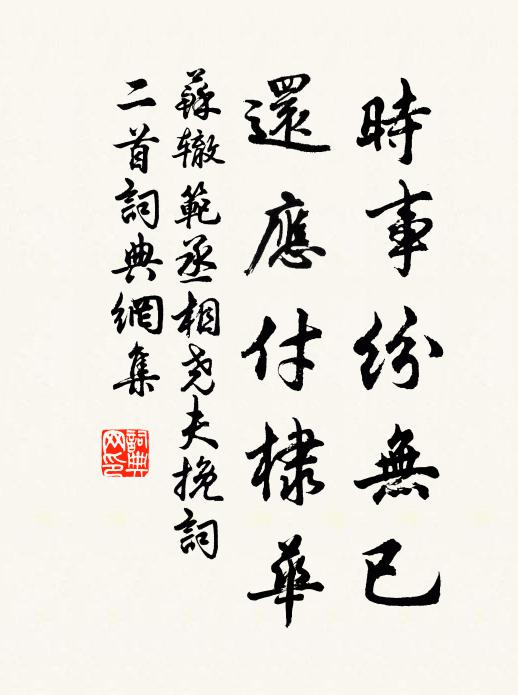 時事紛無已
還應付棣華
蘇轍範丞相堯夫挽詞
二首詞典網集
詞典网印